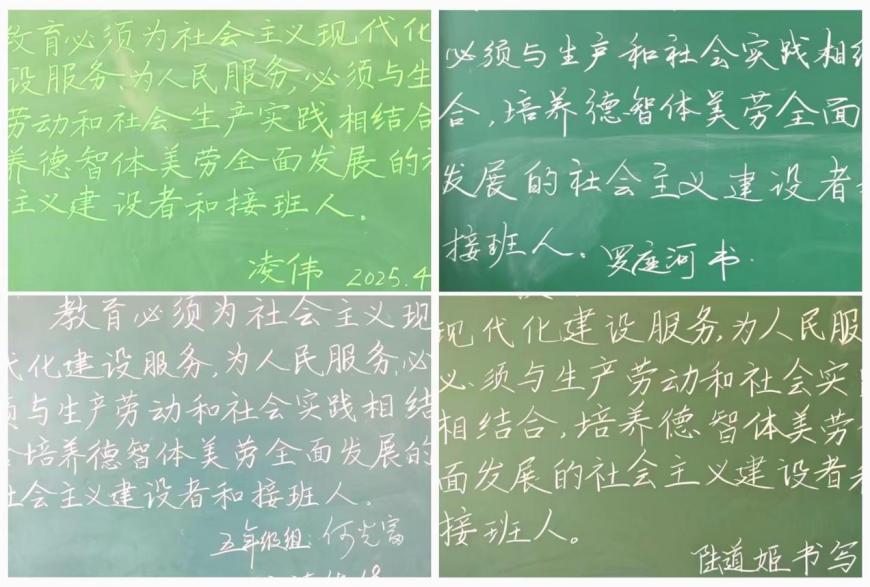 教育必须为社会主义现代化
设服务,为人民服务,必须与生
劳动和社会生产实践相结合
养德智体美劳全面发展的
主义建设者和接班人。
凌伟 2025.4
必须与生产和社会实践相结
合,培养德智体美劳全面
发展的社会主义建设者
接班人。罗座河书
教育必须为社会主义现
代化建设服务,为人民服务,必
须与生产劳动和社会实践相结
合培养德智体美劳全面发展的
社会主义建设者和接班人。
五年级组:何光富
现代化建设服务,为人民服
必须与生产劳动和社会实
相结合,培养德智体美劳
面发展的社会主义建设者
接班人。
陆道姬书写